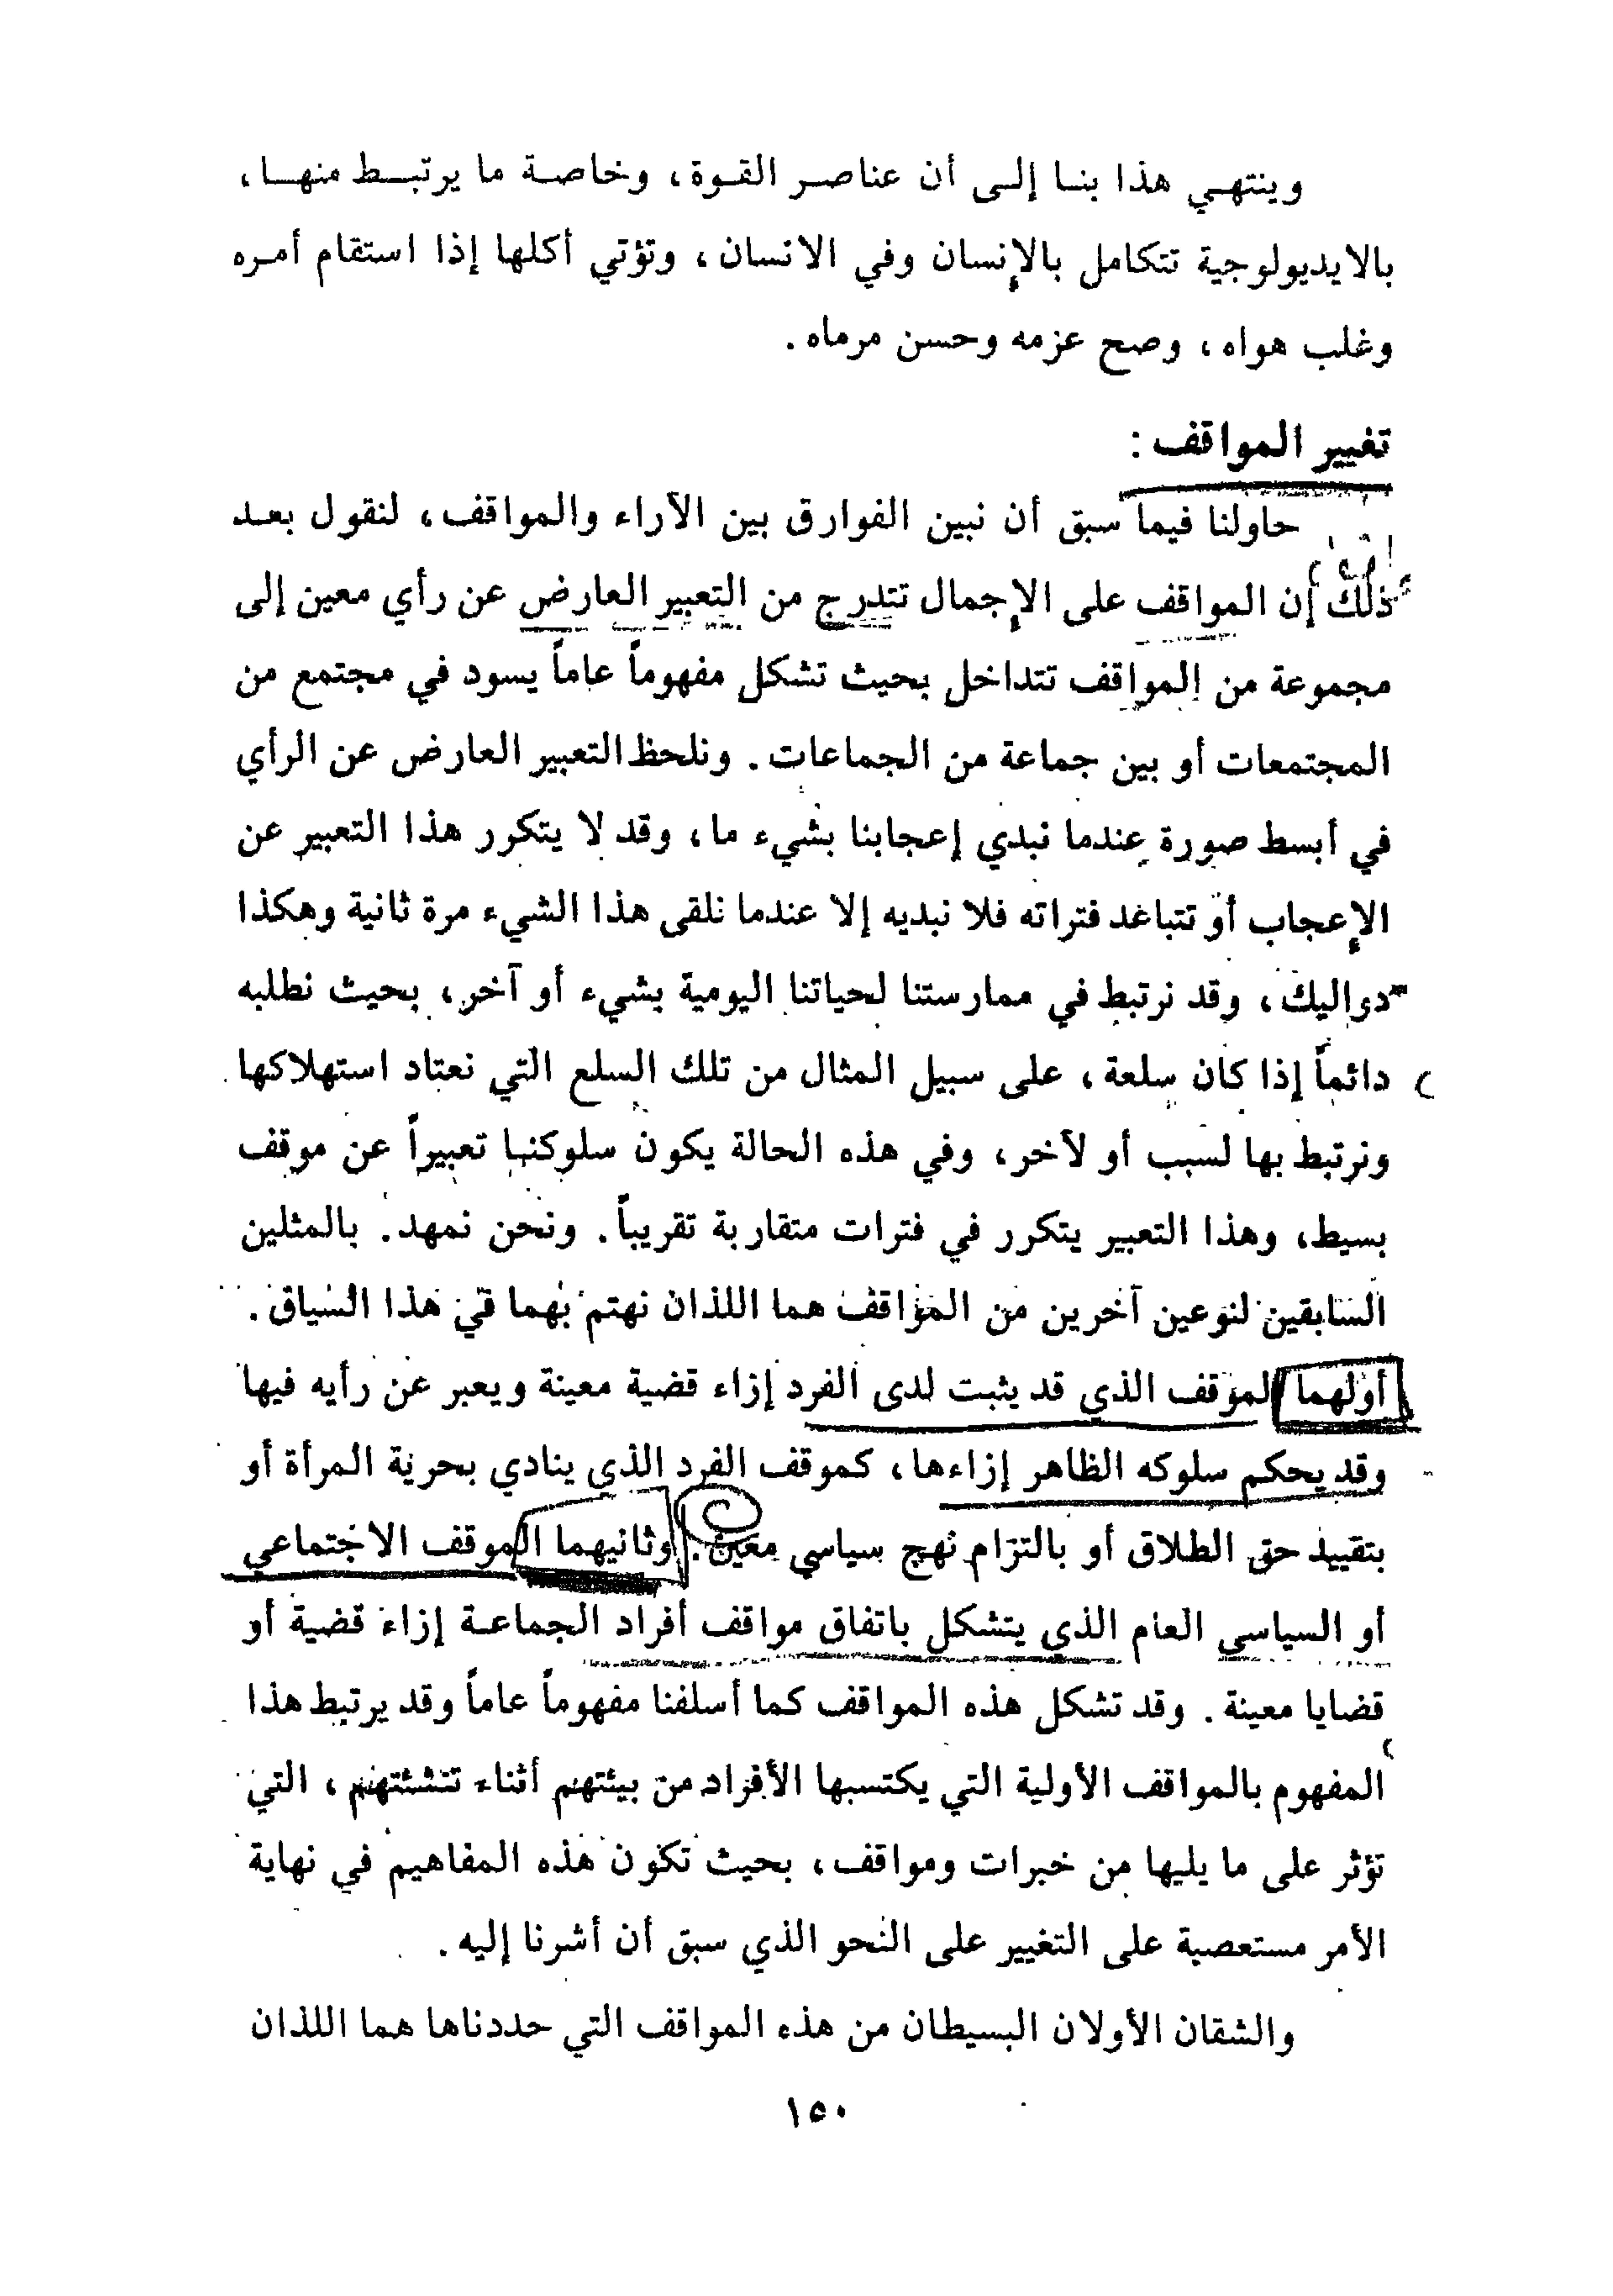 وينتهي هذا بنا إلى أن عناصر القوة، وخاصة ما يرتبط منها،
بالايديولوجية تتكامل بالإنسان وفي الانسان، وتؤتي أكلها إذا استقام أمره
وغلب هواه، وصح عزمه وحسن مرماه.
تغيير المواقف :
حاولنا فيما سبق أن نبين الفوارق بين الآراء والمواقف، لنقول بعد
ذلك إن المواقف على الإجمال تتدرج من التعبير العارض عن رأي معين إلى
مجموعة من المواقف تتداخل بحيث تشكل مفهوماً عاماً يسود في مجتمع من
المجتمعات أو بين جماعة من الجماعات. ونلحظ التعبير العارض عن الرأي
في أبسط صورة عندما نبدي إعجابنا بشيء ما، وقد لا يتكرر هذا التعبير عن
الإعجاب أو تتباعد فتراته فلا نبديه إلا عندما نلقى هذا الشيء مرة ثانية وهكذا
دواليك، وقد نرتبط في ممارستنا لحياتنا اليومية بشيء أو آخر، بحيث نطلبه
دائماً إذا كان سلعة، على سبيل المثال من تلك السلع التي نعتاد استهلاكها
ونرتبط بها لسبب أو لآخر، وفي هذه الحالة يكون سلوكنا تعبيراً عن موقف
بسيط، وهذا التعبير يتكرر في فترات متقاربة تقريباً. ونحن نمهد. بالمثلين
السابقين لنوعين آخرين من المواقف هما اللذان نهتم بهما في هذا السياق.
أولهما الموقف الذي قد يثبت لدى الفرد إزاء قضية معينة ويعبر عن رأيه فيها
وقد يحكم سلوكه الظاهر إزاءها، كموقف الفرد الذي ينادي بحرية المرأة أو
بتقييد حق الطلاق أو بالتزام نهج سياسي معين. وثانيهما الموقف الاجتماعي
أو السياسي العام الذي يتشكل باتفاق مواقف أفراد الجماعة إزاء قضية أو
قضايا معينة. وقد تشكل هذه المواقف كما أسلفنا مفهوماً عاماً وقد يرتبط هذا
المفهوم بالمواقف الأولية التي يكتسبها الأفراد من بيئتهم أثناء تنشئتهم، التي
تؤثر على ما يليها من خبرات ومواقف، بحيث تكون هذه المفاهيم في نهاية
الأمر مستعصية على التغيير على النحو الذي سبق أن أشرنا إليه.
والشقان الأولان البسيطان من هذه المواقف التي حددناها هما اللذان
١٥٠